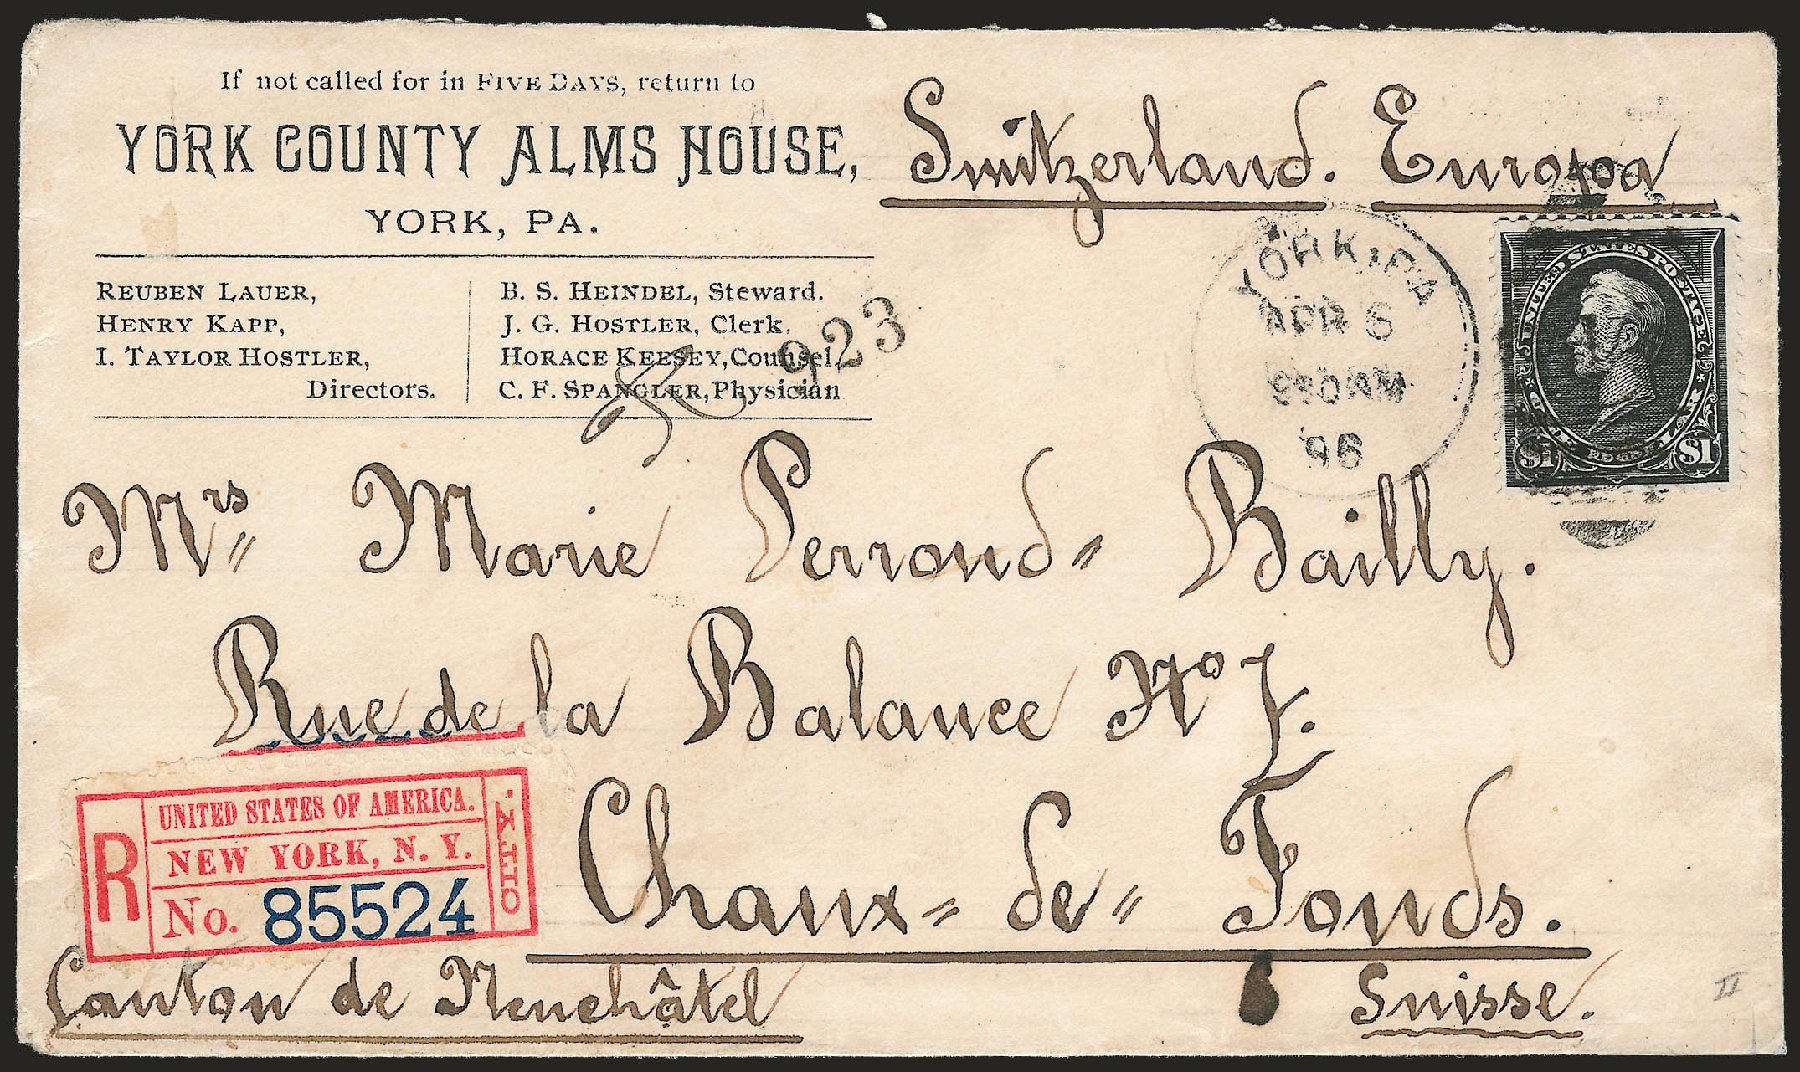 If not called for in FIVE DAYS, return to
YORK COUNTY ALMS HOUSE,
YORK, PA.
REUBEN LAUER,
HENRY KAPP,
I. TAYLOR HOSTLER,
Directors.
B. S. HEINDEL, Steward.
J. G. HOSTLER, Clerk.
HORACE KEESEY, Counsel.
C. F. SPANGLER, Physician
923
Switzerland. Europa
YORK, PA
APR 6
930AM
96
UNITED STATES POSTAGE
$1 $1
Mrs Marie Perrond-Bailly.
Rue de la Balance No 7.
Chaux-de-Fonds.
R
UNITED STATES OF AMERICA.
NEW YORK, N. Y.
No. 85524
CITY.
Canton de Neuchâtel
Suisse.
II